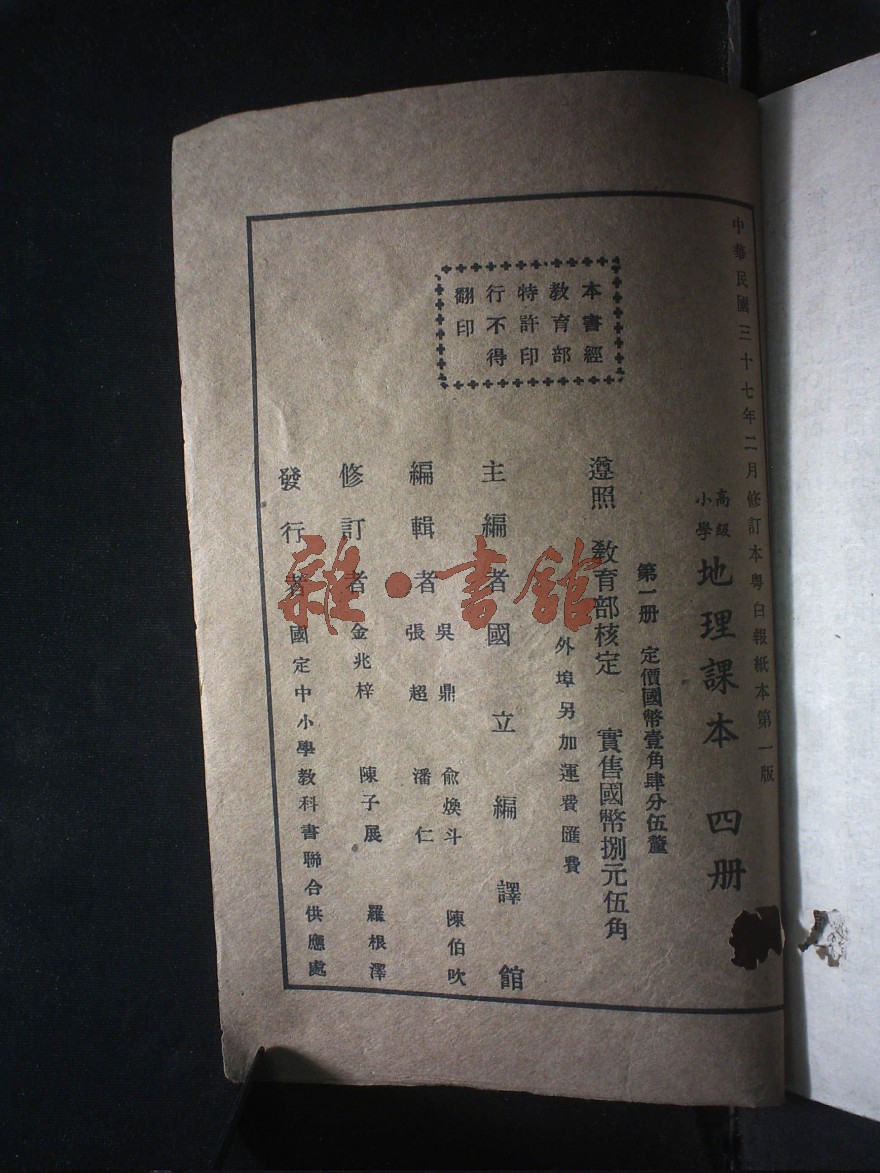 中華民國三十七年二月修訂本粤白報紙本第一版
高級
小學
地理課本 四册
第一册 定價國幣壹角肆分伍釐
遵照 教育部核定 實售國幣捌元伍角
外埠另加運費匯費
本書經
教育部
特許印
行不得
翻印
主編者 國立編譯館
編輯者 吳鼎 俞焕斗 陳伯吹
張超 潘仁
修訂者 金兆梓 陳子展 羅根澤
發行者 國定中小學教科書聯合供應處
雜·書館